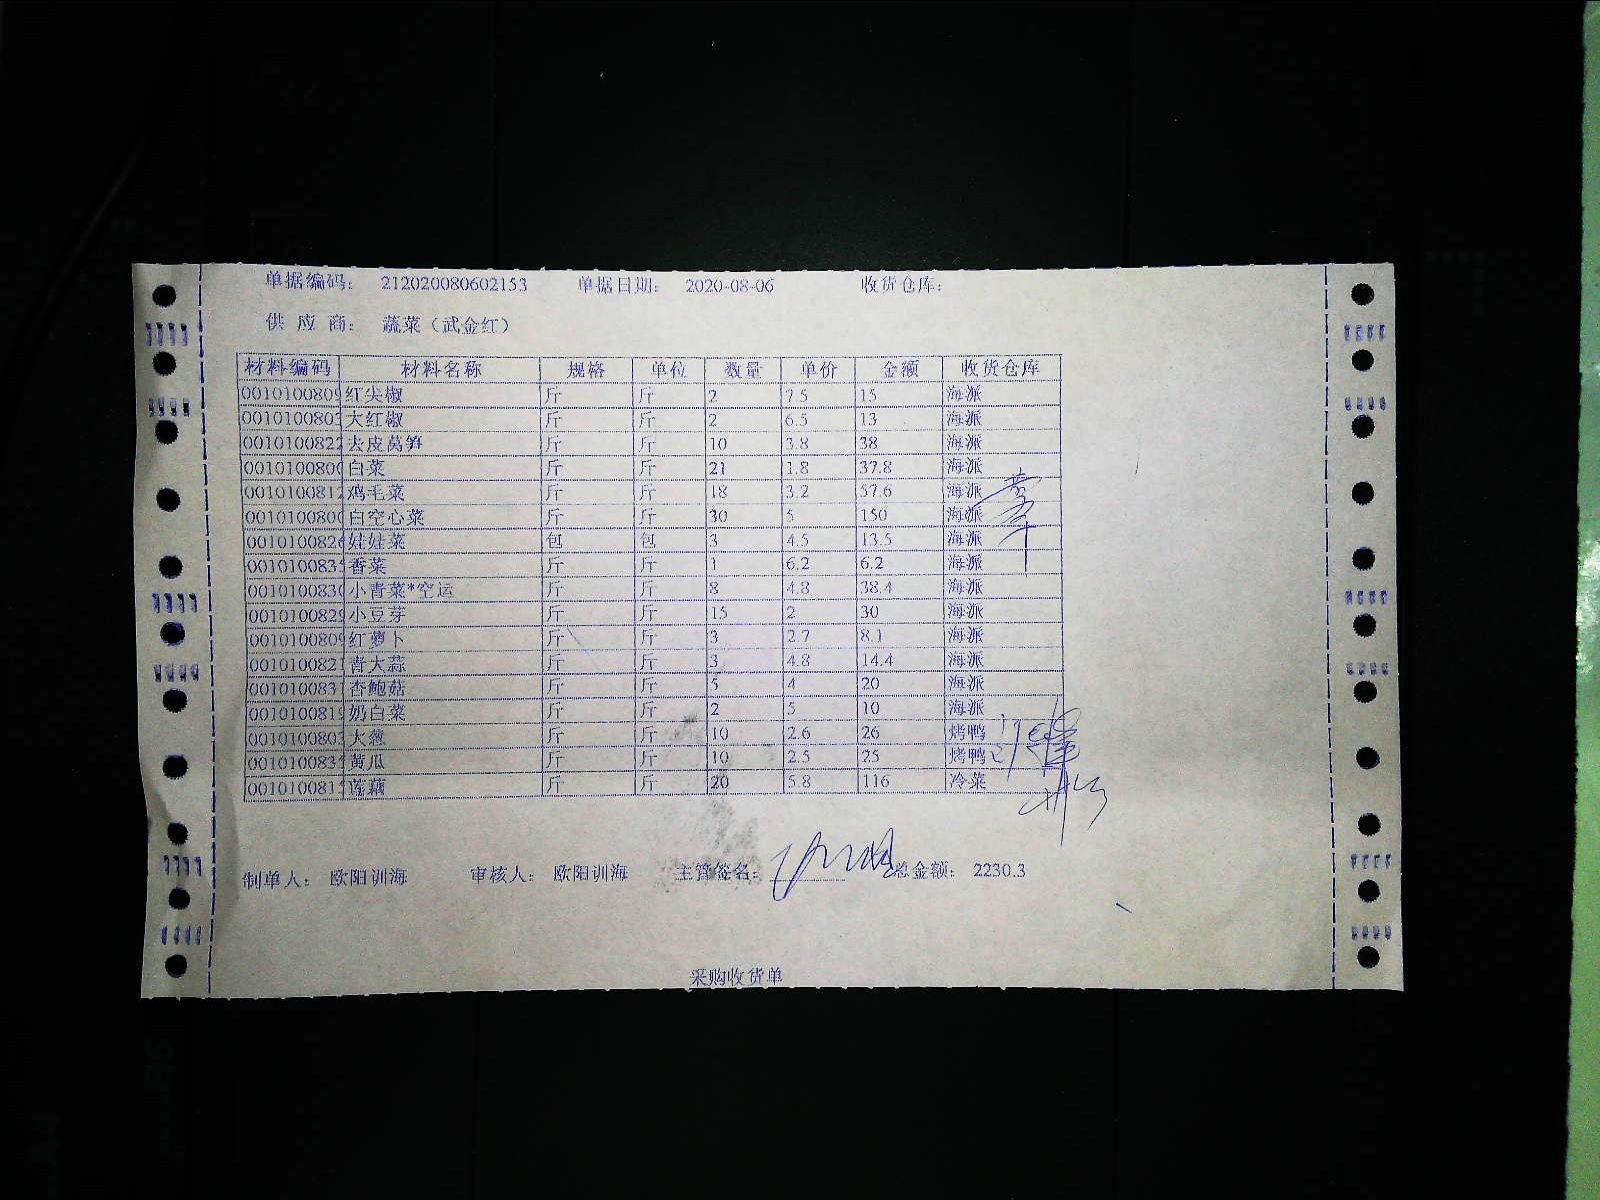 单据编码： 212020080602153 单据日期： 2020-08-06 收货仓库：
供 应 商： 蔬菜（武金红）
材料编码 材料名称 规格 单位 数量 单价 金额 收货仓库
0010100809 红尖椒 斤 斤 2 7.5 15 海派
0010100803 大红椒 斤 斤 2 6.5 13 海派
0010100822 去皮莴笋 斤 斤 10 3.8 38 海派
0010100800 白菜 斤 斤 21 1.8 37.8 海派
0010100812 鸡毛菜 斤 斤 18 3.2 57.6 海派
0010100800 白空心菜 斤 斤 30 5 150 海派
0010100826 娃娃菜 包 包 3 4.5 13.5 海派
0010100835 香菜 斤 斤 1 6.2 6.2 海派
0010100830 小青菜*空运 斤 斤 8 4.8 38.4 海派
0010100829 小豆芽 斤 斤 15 2 30 海派
0010100809 红萝卜 斤 斤 3 2.7 8.1 海派
0010100821 青大蒜 斤 斤 3 4.8 14.4 海派
0010100831 杏鲍菇 斤 斤 5 4 20 海派
0010100819 奶白菜 斤 斤 2 5 10 海派
0010100803 大葱 斤 斤 10 2.6 26 烤鸭
0010100835 黄瓜 斤 斤 10 2.5 25 烤鸭
0010100815 莲藕 斤 斤 20 5.8 116 冷菜
制单人： 欧阳训海 审核人： 欧阳训海 主管签名： 总金额： 2230.3
采购收货单